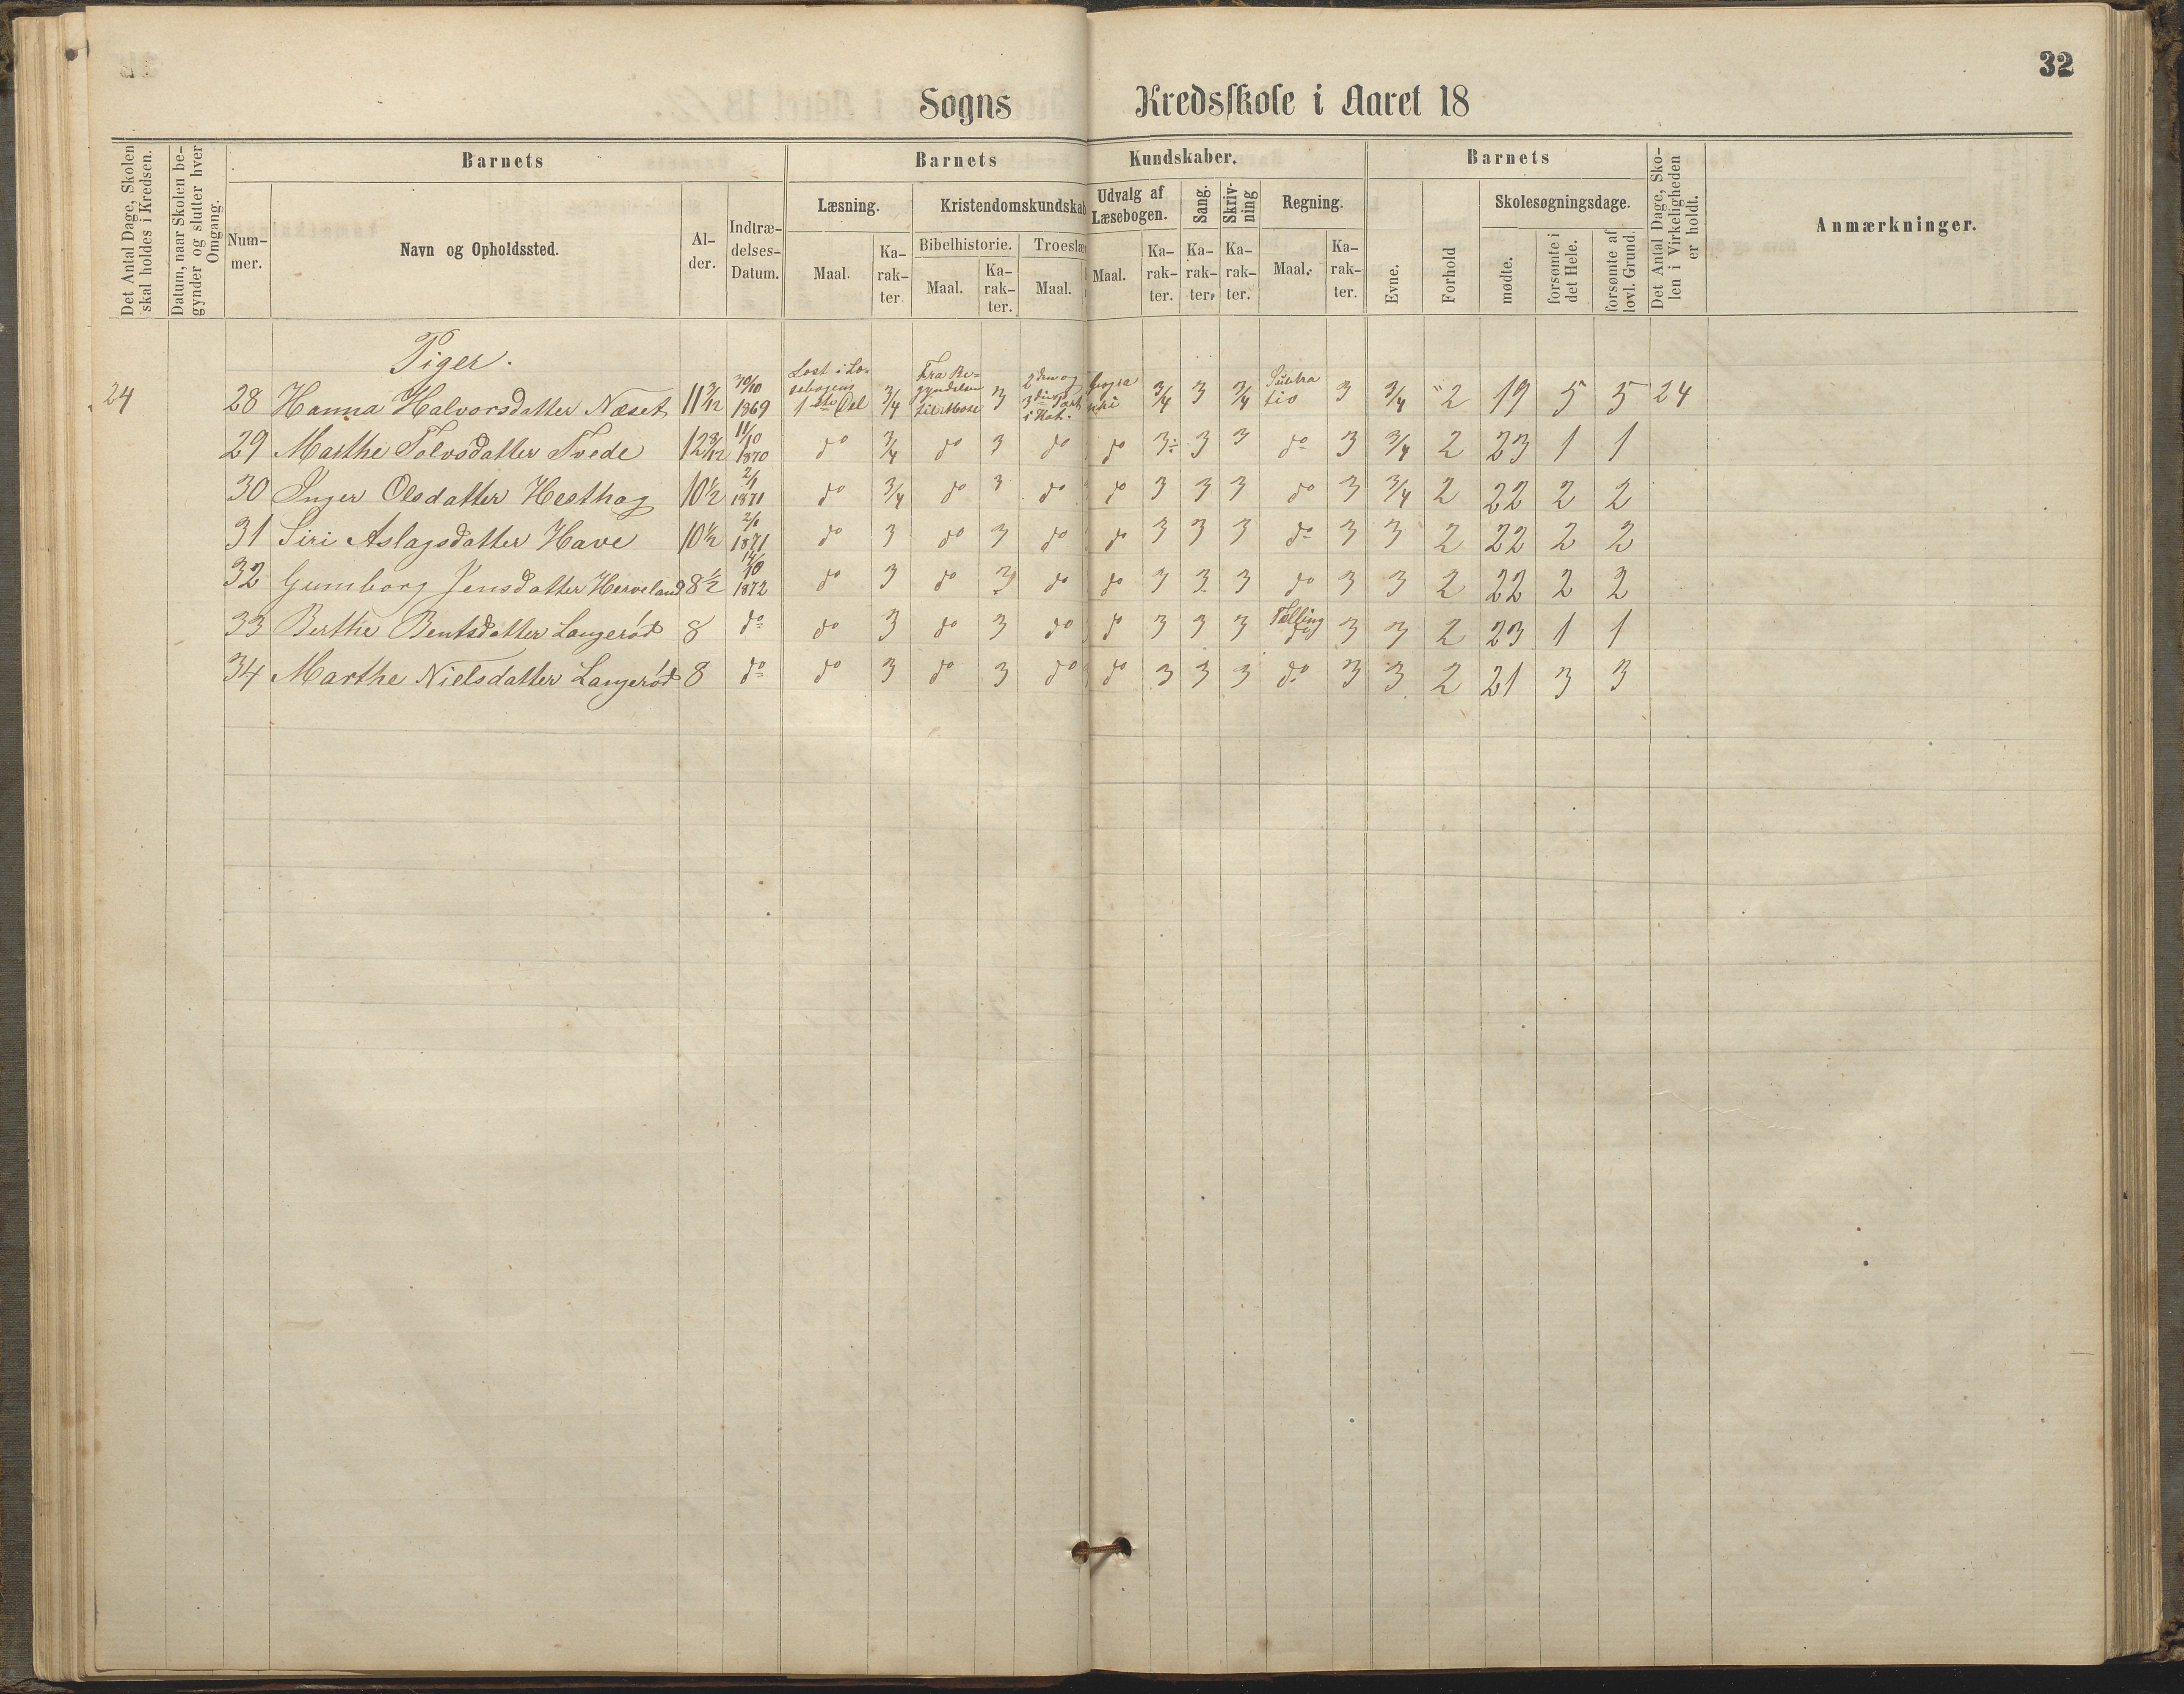 32
Sogns Kredsskole i Aaret 18
Det Antal Dage, Skolen skal holdes i Kredsen.
Datum, naar Skolen be-gynder og slutter hver Omgang.
Barnets
Num-mer.
Navn og Opholdssted.
Al-der.
Indtræ-delses-Datum.
Barnets Kundskaber.
Læsning.
Maal.
Ka-rak-ter.
Kristendomskundskab
Bibelhistorie.
Maal.
Ka-rak-ter.
Troeslæ
Maal.
Udvalg af Læsebogen.
Maal.
Ka-rak-ter.
Sang.
Ka-rak-ter.
Skriv-ning
Ka-rak-ter.
Regning.
Maal.
Ka-rak-ter.
Barnets
Evne.
Forhold
Skolesøgningsdage.
mødte.
forsømte i det Hele.
forsømte af lovl. Grund.
Det Antal Dage, Sko-len i Virkeligheden er holdt.
Anmærkninger.
Piger.
24 28 Hanna Halvorsdatter Næset 11 3/12 30/10 1869 Læst i Læ-sebogens 1ste Del 3/4 Fra Be-gyndelsen til Mose 3 2den og 3die Part i Kat. 3/4 3 3/4 Subtra tio 3 3/4 2 19 5 5 24
29 Marthe Tolvsdatter Tvede 12 8/12 11/10 1870 do 3/4 do 3 do do 3÷ 3 3 do 3 3/4 2 23 1 1
30 Inger Olsdatter Hesthag 10 1/2 2/1 1871 do 3/4 do 3 do do 3 3 3 do 3 3/4 2 22 2 2
31 Siri Aslagsdatter Have 10 1/2 2/1 1871 do 3 do 3 do do 3 3 3 do 3 3 2 22 2 2
32 Gumborg Jensdatter Herveland 8 1/2 14/10 1872 do 3 do 3 do do 3 3 3 do 3 3 2 22 2 2
33 Berthe Bentsdatter Langerød 8 do do 3 do 3 do do 3 3 3 Tælling 3 3 2 23 1 1
34 Marthe Nielsdatter Langerød 8 do do 3 do 3 do do 3 3 3 do 3 3 2 21 3 3